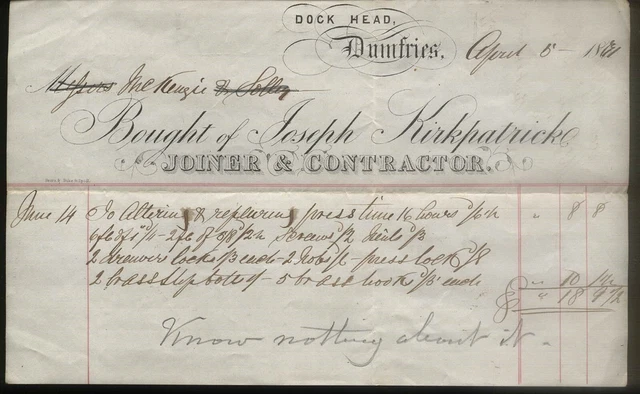 DOCK HEAD,
Dumfries. April 5 - 18
Messrs McKenzie &
Bought of Joseph Kirkpatrick
JOINER & CONTRACTOR.
June 14 To Altering & repairing press time 16 hours 6½ " 8 8
6 ft of 1¼ - 2 ft of 5/8 /2½ Screws /2 Nails /3
2 drawers locks 1/3 each - 2 Nobs /- press lock /8
2 brass slip bolts - 5 brass hooks /3 each " 10
£ " 18 9½
Know nothing about it.